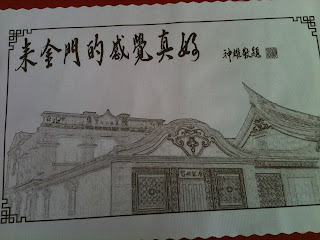 來金門的感覺真好
神雕敬題